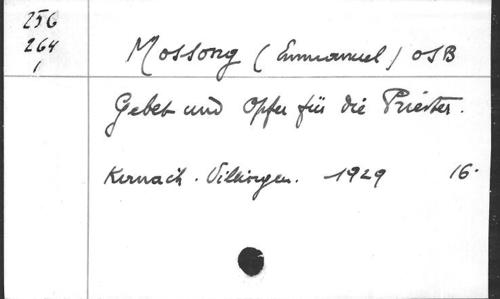 256
264
1
Mossong (Emmanuel) OSB
Gebet und Opfer für die Priester.
Kirnach. Villingen. 1929 16.